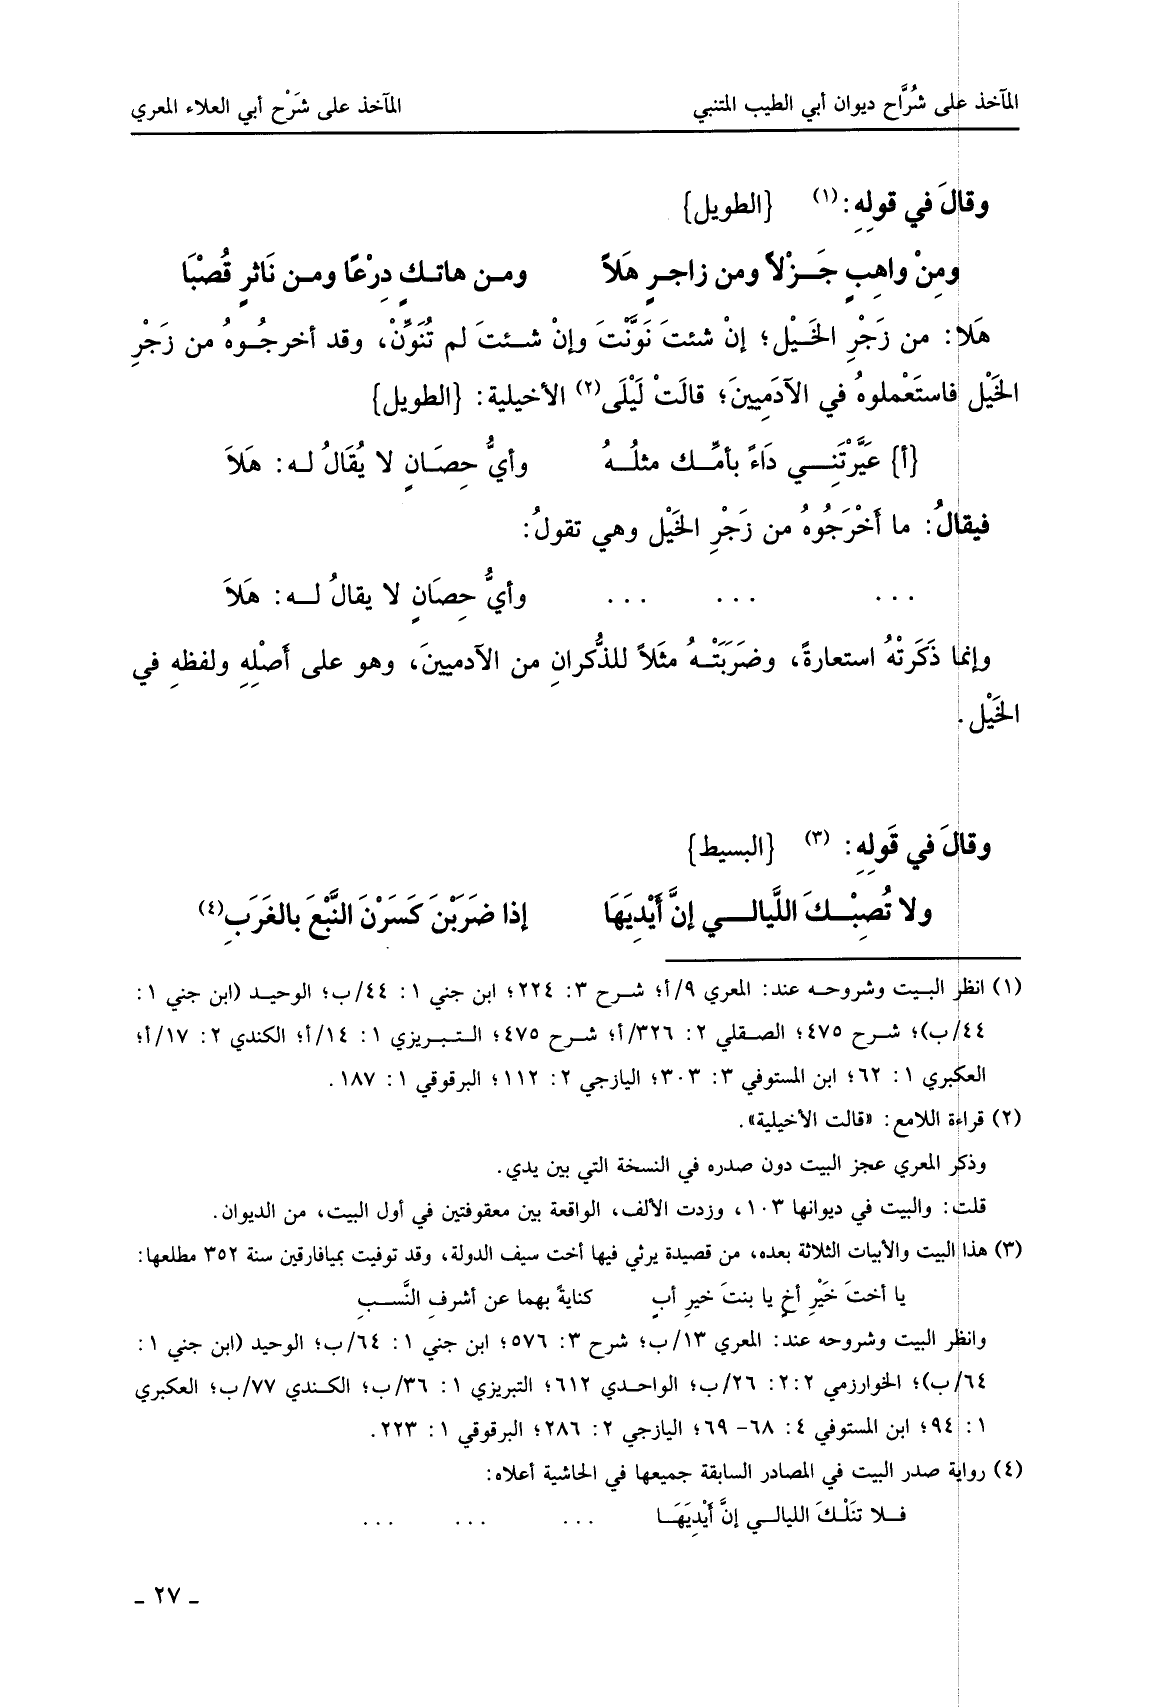 المآخذ على شُرَّاح ديوان أبي الطيب المتنبي المآخذ على شَرْح أبي العلاء المعري
وقالَ في قولِهِ: (١) {الطويل}
ومِنْ واهِبٍ جَـزْلاً ومن زاجـرٍ هَلاً ومـن هاتـكٍ دِرْعًا ومـن نَاثرٍ قُصْبَا
هَلا: من زَجْرِ الخَيْل؛ إنْ شئتَ نَوَّنْتَ وإنْ شـئتَ لم تُنَوِّنْ، وقد أخرجُـوهُ من زَجْرِ
الخَيْل فاستَعْملوهُ في الآدَمِيينَ؛ قالَتْ لَيْلَى(٢) الأخيلية: {الطويل}
{أ} عَيَّرْتَنِـي دَاءً بأمِّـك مثلُـهُ وأيُّ حِصَـانٍ لا يُقَالُ لـه: هَلاَ
فيقالُ: ما أَخْرَجُوهُ من زَجْرِ الخَيْل وهي تقولُ:
... ... ... وأيُّ حِصَانٍ لا يقالُ لـه: هَلاَ
وإنما ذَكَرَتْهُ استعارةً، وضَرَبَتْـهُ مثَلاً للذُّكرانِ من الآدميينَ، وهو على أَصْلِهِ ولفظهِ في
الخَيْل.
وقالَ في قَولِهِ: (٣) {البسيط}
ولا تُصِبْـكَ اللَّيالـي إنَّ أَيْدِيَهَا إذا ضَرَبْنَ كَسَرْنَ النَّبْعَ بالغَرَبِ(٤)
(١) انظر البـيت وشروحـه عند: المعري ٩/أ؛ شـرح ٣: ٢٢٤؛ ابن جني ١: ٤٤/ب؛ الوحيـد (ابن جني ١:
٤٤/ب)؛ شـرح ٤٧٥؛ الصـقلي ٢: ٣٢٦/أ؛ شـرح ٤٧٥؛ التـبـريزي ١: ١٤/أ؛ الكندي ٢: ١٧/أ؛
العكبري ١: ٦٢؛ ابن المستوفي ٣: ٣٠٣؛ اليازجي ٢: ١١٢؛ البرقوقي ١: ١٨٧.
(٢) قراءة اللامع: «قالت الأخيلية».
وذكر المعري عجز البيت دون صدره في النسخة التي بين يدي.
قلت: والبيت في ديوانها ١٠٣، وزدت الألف، الواقعة بين معقوفتين في أول البيت، من الديوان.
(٣) هذا البيت والأبيات الثلاثة بعده، من قصيدة يرثي فيها أخت سيف الدولة، وقد توفيت بميافارقين سنة ٣٥٢ مطلعها:
يا أختَ خَيْرِ أخٍ يا بنتَ خيرِ أبٍ كنايةً بهما عن أشرفِ النَّسـبِ
وانظر البيت وشروحه عند: المعري ١٣/ب؛ شرح ٣: ٥٧٦؛ ابن جني ١: ٦٤/ب؛ الوحيد (ابن جني ١:
٦٤/ب)؛ الخوارزمي ٢:٢: ٢٦/ب؛ الواحـدي ٦١٢؛ التبريزي ١: ٣٦/ب؛ الكـندي ٧٧/ب؛ العكبري
١: ٩٤؛ ابن المستوفي ٤: ٦٨– ٦٩؛ اليازجي ٢: ٢٨٦؛ البرقوقي ١: ٢٢٣.
(٤) رواية صدر البيت في المصادر السابقة جميعها في الحاشية أعلاه:
فـلا تنَلْـكَ الليالـي إنَّ أَيْدِيَهَـا ... ... ...
ـ ٢٧ ـ